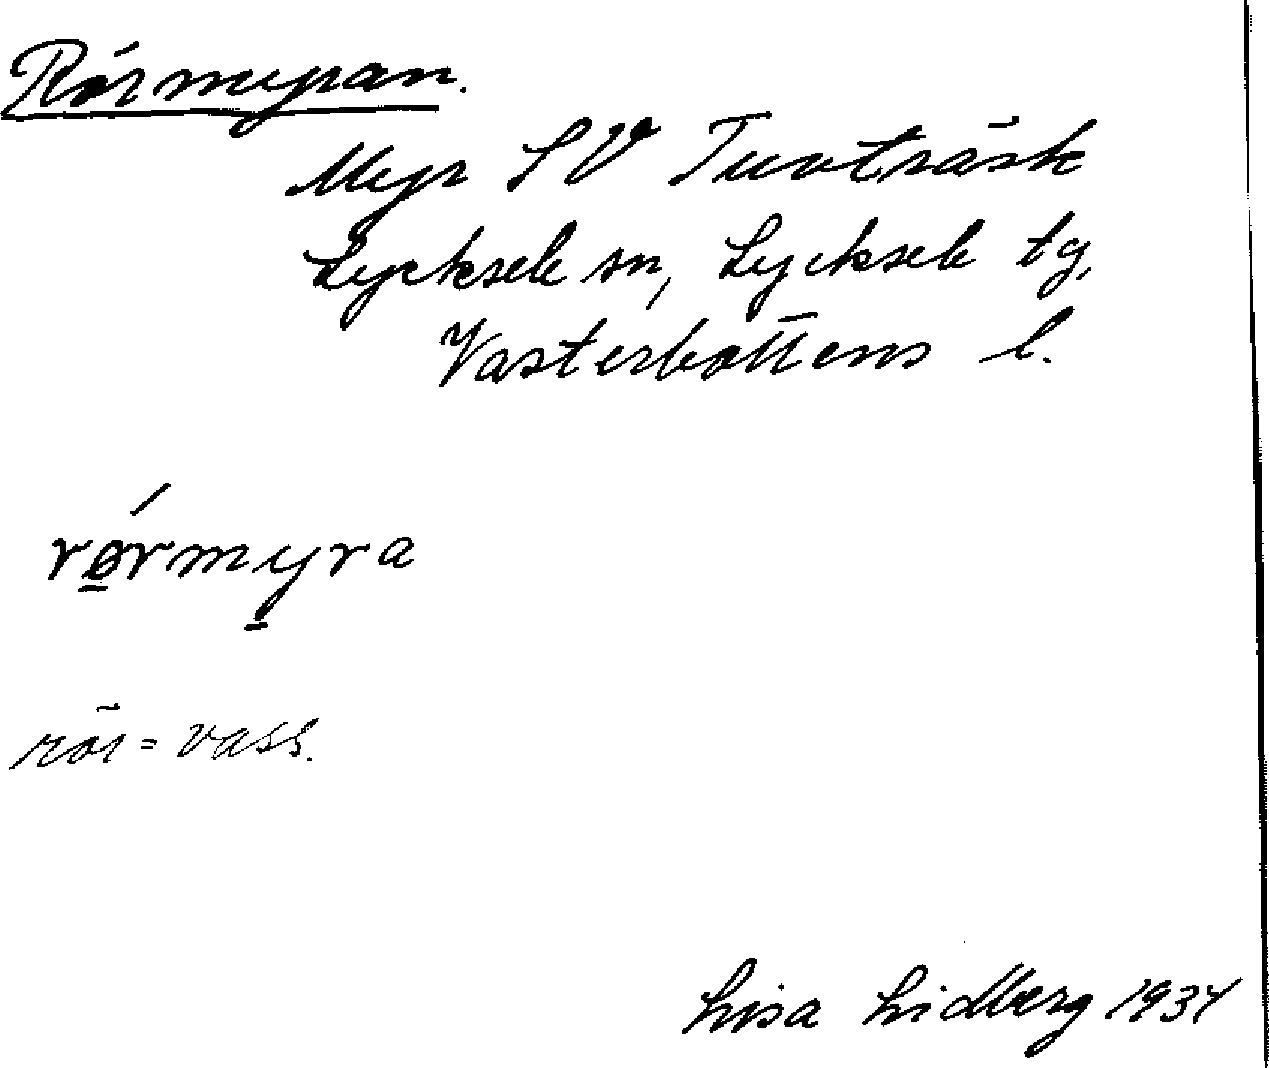 Rörmyran.
Myr SV Tuvträsk
Lycksele sn, Lycksele tg,
Västerbottens l.
rørmyra
rör = vass.
Lisa Lidberg 1934